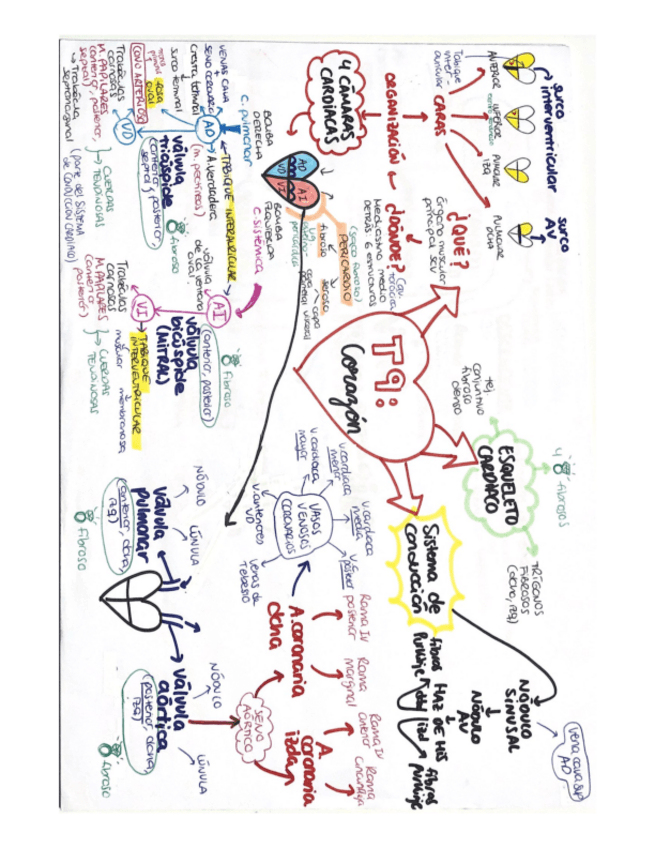 T9:
Corazón
¿QUÉ?
órgano muscular
principal SCV
¿DÓNDE?
Cav. torácica
Mediastino medio
DETRÁS
(saco fibroso)
PERICARDIO
fibroso
seroso
capa
parietal
visceral
ORGANIZACIÓN
CARAS
ANTERIOR
INFERIOR
PULMONAR
IZQ
PULMONAR
DCHA
surco
interventricular
surco
AV
4 CÁMARAS
CARDÍACAS
AD
AI
VD
VI
BOMBA
DERECHA
BOMBA
IZQUIERDA
C. pulmonar
C. sistémica
VENAS CAVA
SENO CORONARIO
Cresta terminal
surco terminal
fosa
oval
AD
A. verdadera
(m. pectíneos)
TABIQUE INTERAURICULAR
válvula
de la vena
oval
AI
CONO ARTERIOSO
VD
válvula
tricúspide
(anterior, posterior,
septal)
fibroso
Trabéculas
carnosas
M. PAPILARES
(anterior, posterior,
septal)
CUERDAS
TENDINOSAS
Trabécula
septomarginal
(parte del SISTEMA
DE CONDUCCIÓN CARDÍACO)
válvula
bicúspide
(MITRAL)
(anterior, posterior)
fibroso
VI
TABIQUE
INTERVENTRICULAR
muscular
membranosa
Trabéculas
carnosas
M. PAPILARES
(anterior
posterior)
CUERDAS
TENDINOSAS
ESQUELETO
CARDÍACO
tej
conjuntivo
fibroso
denso
4
fibrosos
TRÍGONOS
FIBROSOS
(dcho, izq)
Sistema de
conducción
NÓDULO
SINUSAL
vena cava sup
AD
NÓDULO
AV
HAZ DE HIS
fibras
Purkinje
fibras
Purkinje
VASOS
VENOSOS
CORONARIOS
v. cardíaca
mayor
v. cardíaca
menor
v. cardíaca
media
posterior
v. anteriores
VD
venas de
Tebesio
A. coronaria
dcha
Rama IV
posterior
Rama
marginal
A.
coronaria
izda
Rama IV
anterior
Rama
circunfleja
SENO
AÓRTICO
válvula
pulmonar
(anterior, dcha,
izq)
fibroso
NÓDULO
LÚNULA
válvula
aórtica
(posterior, dcha,
izq)
fibroso
NÓDULO
LÚNULA